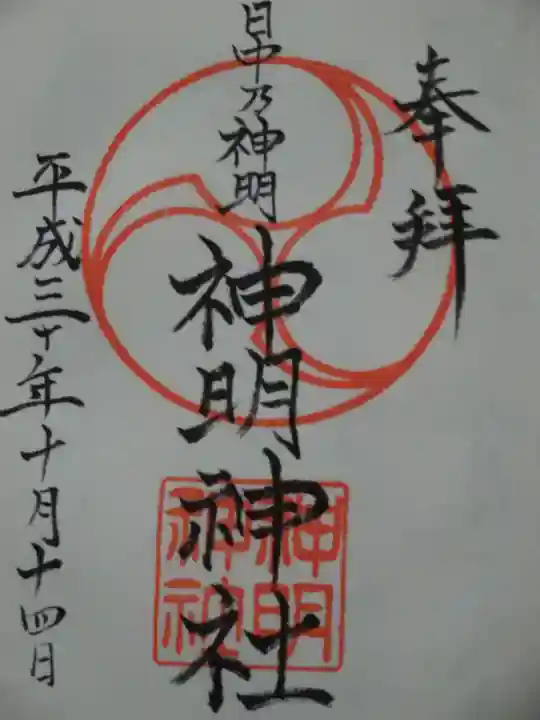 奉拝
日中乃神明
神明神社
平成三十年十月十四日
神明
神社